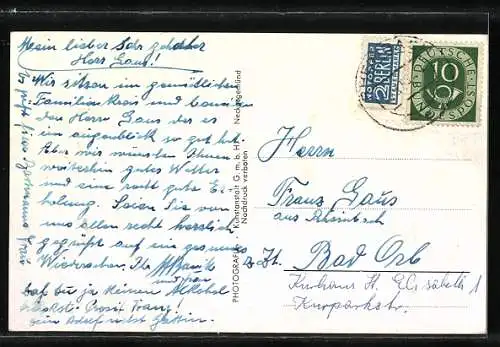 Mein lieber Sehr geehrter
Herr Gaus!
Wir sitzen im gemütlichen
Familienkreis und
den Herrn Gaus der es
im augenblick so gut hat
Aber wir wünschen Ihnen
weiterhin gutes Wetter
und eine recht gute Er-
holung. Seien Sie von
uns allen recht herzlich
gegrüßt auf ein gesundes
Wiedersehen. Ihr
und Frau
ja keinen Alkohol
Prosit Franz!
dein Adolf nebst Gattin
PHOTOGRAPHIE Kunstanstalt G. m. b. H. Neckargemünd
Nachdruck verboten
NOTOPFER
2 BERLIN
STEUERMARKE
DEUTSCHE BUNDESPOST
10
Herrn
Franz Gaus
aus
z. Zt. Bad Orb
Kurhaus St. Elisabeth 1
Kurparkstr.